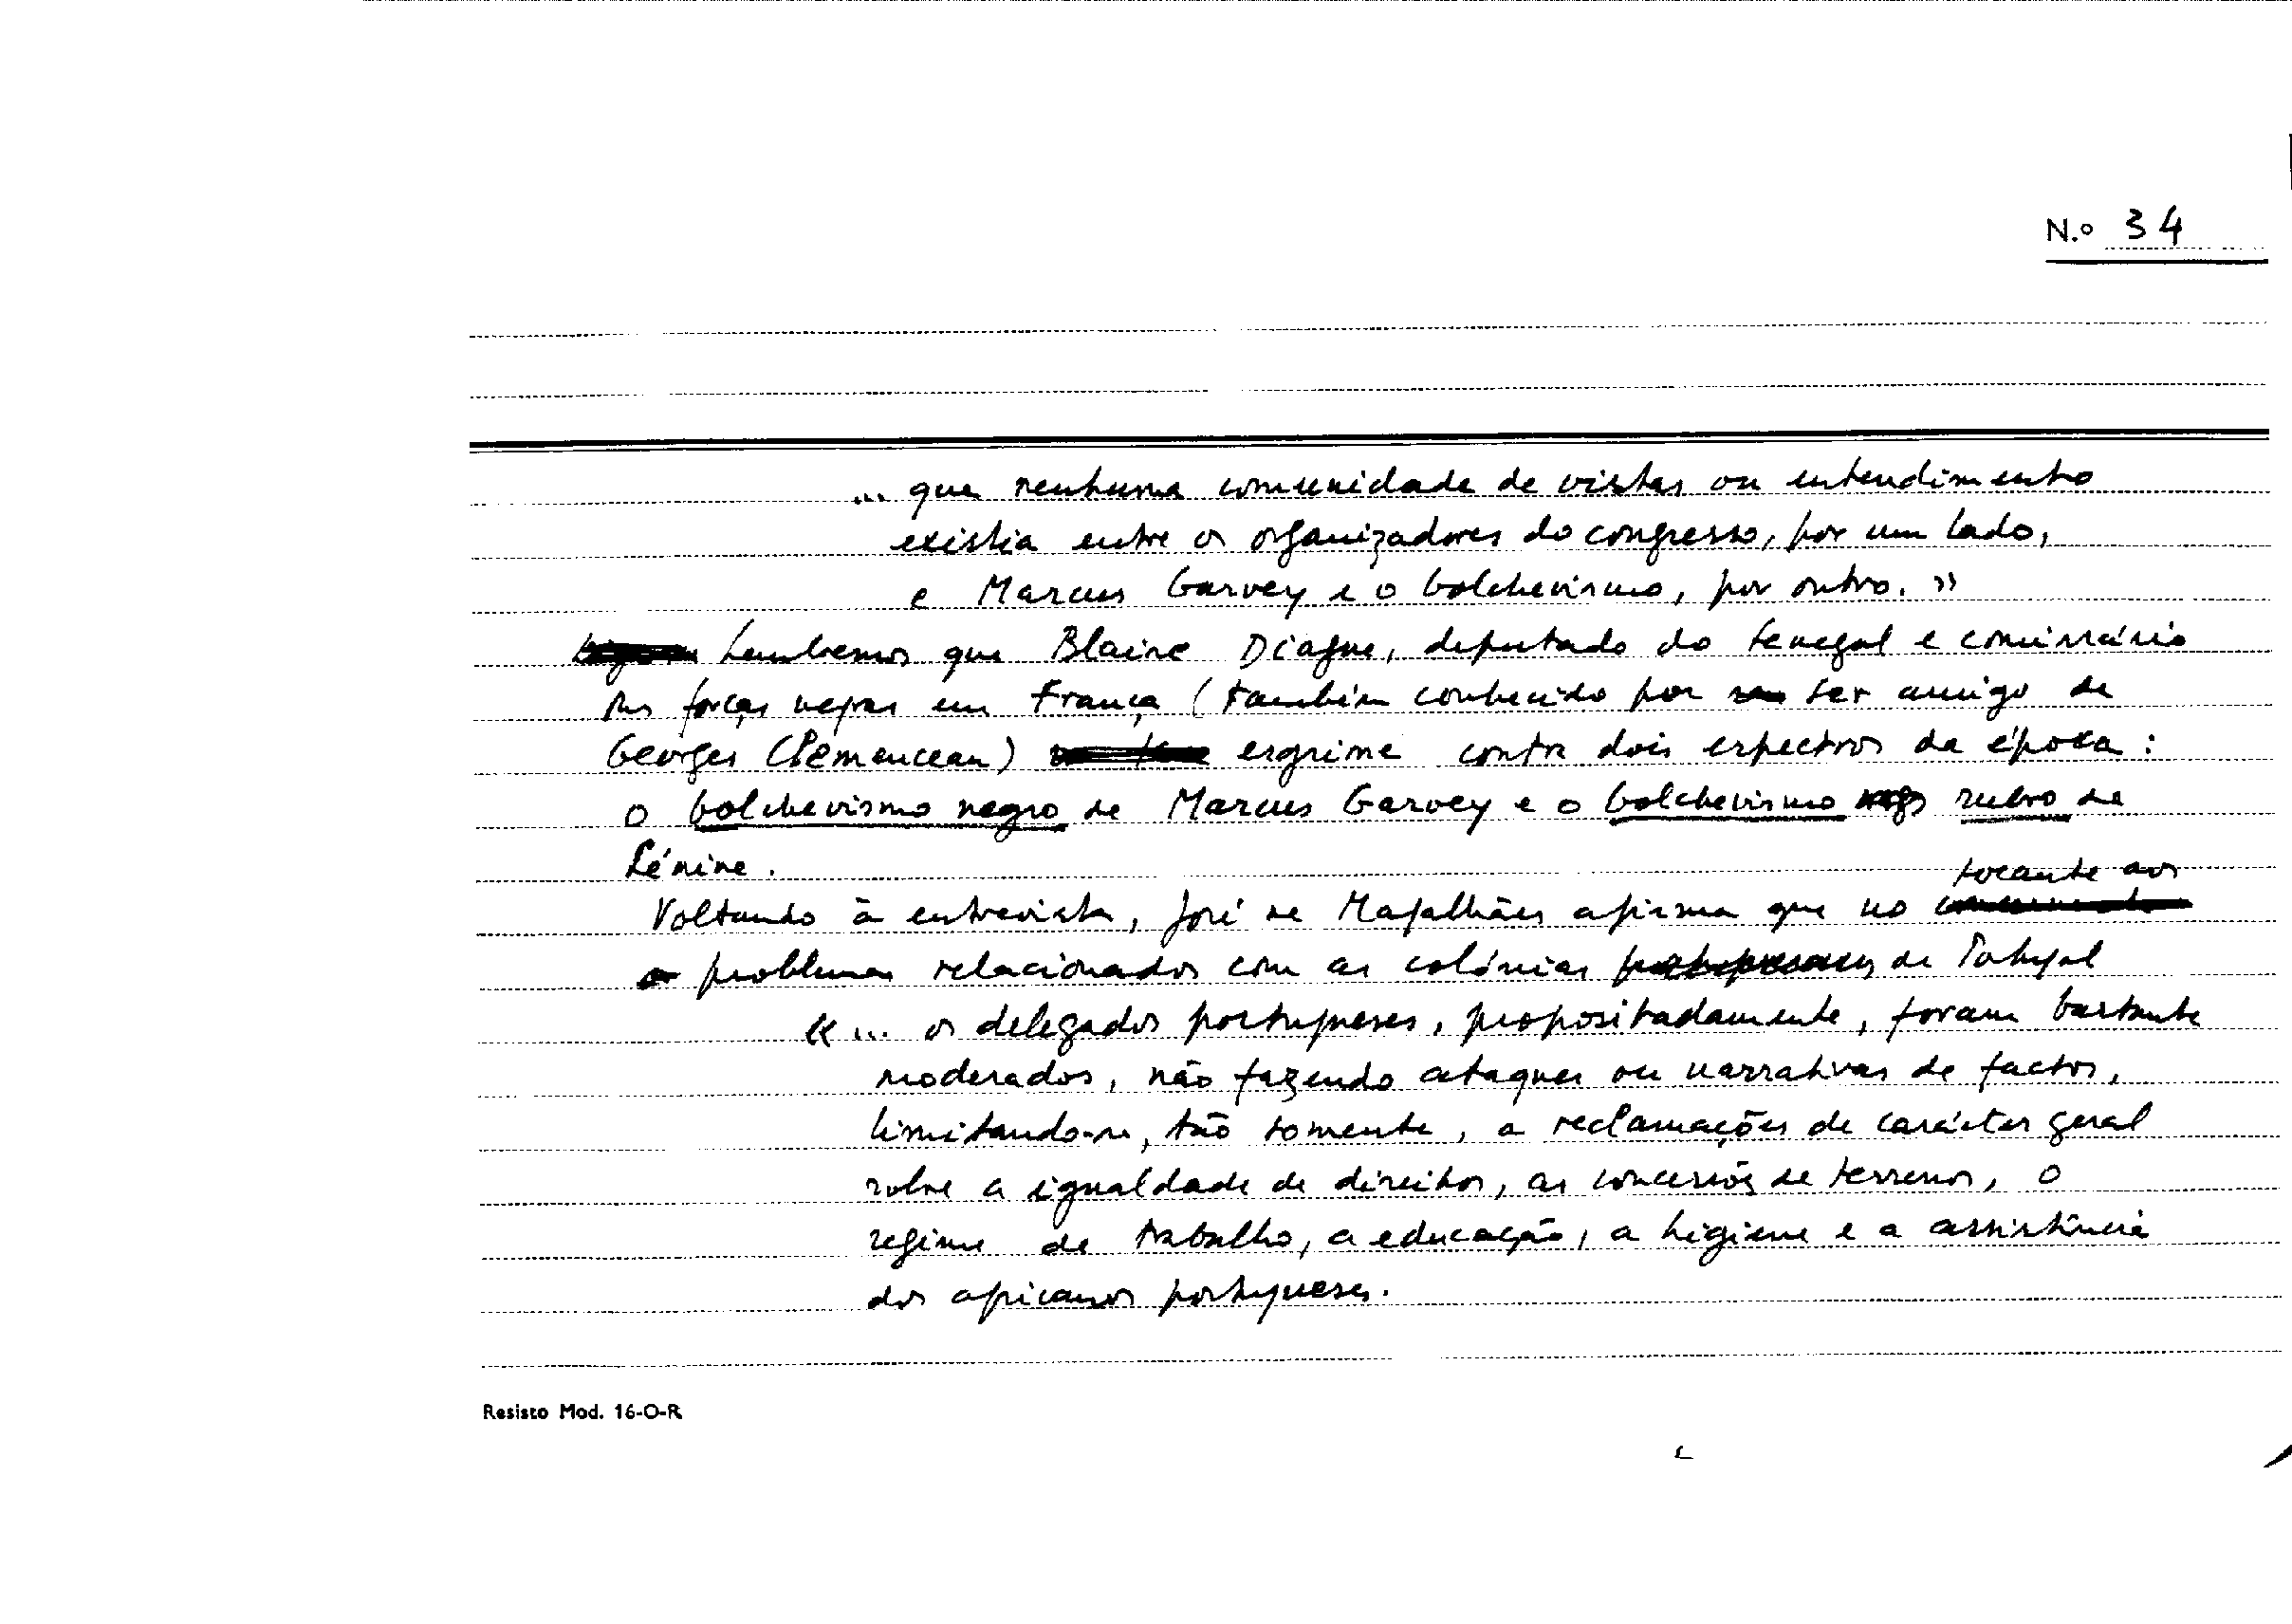 N.º 34
... que nenhuma comunidade de vistas ou entendimento
existia entre os organizadores do congresso, por um lado,
e Marcus Garvey e o bolchevismo, por outro. »
Lembremos que Blaise Diagne, deputado do Senegal e comissário
das forças negras em França (também conhecido por ser amigo de
Georges Clemenceau) esgrime contra dois espectros da época :
o bolchevismo negro de Marcus Garvey e o bolchevismo rubro de
Lénine.
tocante aos
Voltando à entrevista, José de Magalhães afirma que no
problemas relacionados com as colónias de Portugal
« ... os delegados portugueses, propositadamente, foram bastante
moderados, não fazendo ataques ou narrativas de factos,
limitando-se, tão somente, a reclamações de carácter geral
sobre a igualdade de direitos, as concessões de terrenos, o
regime de trabalho, a educação, a higiene e a assistência
dos africanos portugueses.
Resisto Mod. 16-O-R